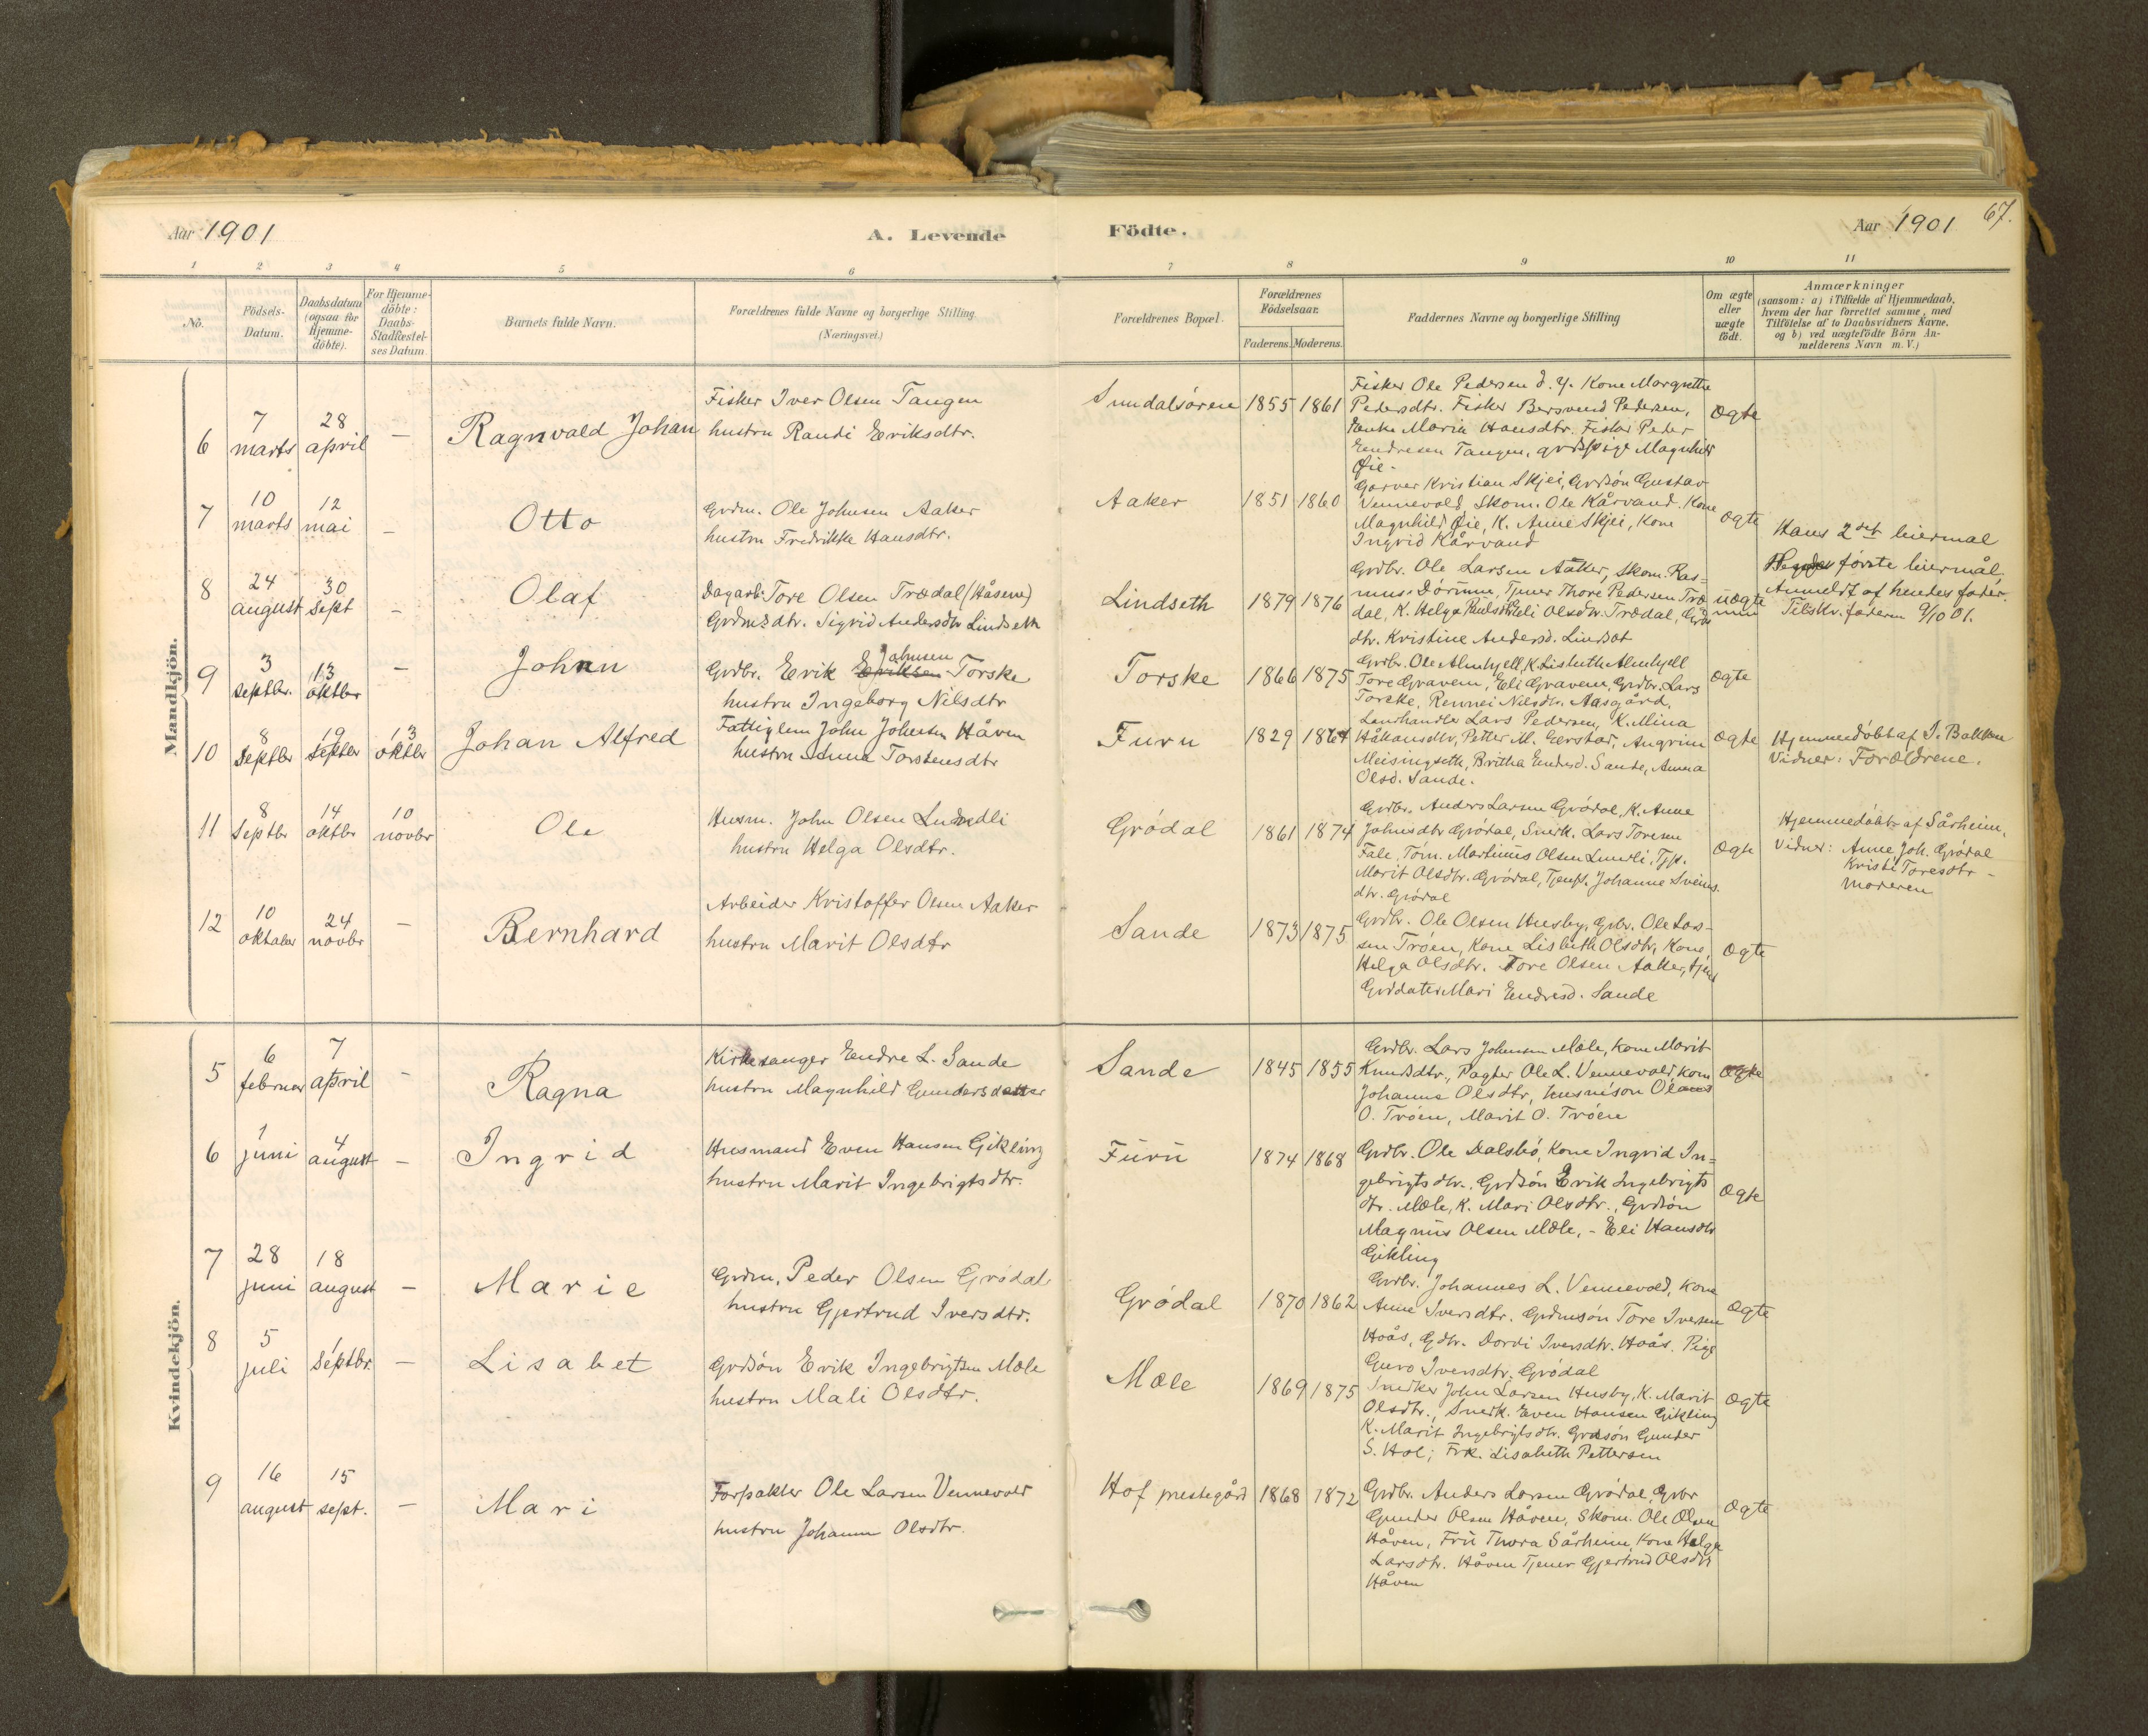 Aar 1901
A. Levende Födte.
Aar 1901
67.
1 2 3 4 5 6 7 8 9 10 11
No.
Födsels-
Datum.
Daabsdatum
(ogsaa for
Hjemme-
döbte).
For Hjemme-
döbte:
Daabs-
Stadfæstel-
ses Datum
Barnets fulde Navn.
Forældrenes fulde Navne og borgerlige Stilling
(Næringsvei.)
Forældrenes Bopæl.
Forældrenes
Födselsaar.
Faderens. Moderens.
Faddernes Navne og borgerlige Stilling
Om ægte
eller
uægte
födt.
Anmærkninger
(saasom: a) i Tilfælde af Hjemmedaab,
hvem der har forrettet samme, med
Tilföielse af to Daabsvidners Navne,
og b) ved uægtefödte Börn An-
melderens Navn m. V.)
Mandkjön.
6
7
marts
28
april
—
Ragnvald Johan
Fisker Iver Olsen Tangen
hustru Randi Eriksdtr.
Sundalsøren
1855
1861
Fisker Ole Pedersen d. y. Kone Margrethe
Pedersdtr. Fisker Bersvend Pedersen,
Enke Maria Hansdtr. Fisker Peder
Endresen Tangen, grdspige Magnhild
Øie.
Øgte
7
10
marts
12
mai
–
Otto
Grdm. Ole Johnsen Aaker
hustru Fredrikke Hansdtr.
Aaker
1851
1860
Garver Kristian Skjei, Grdsøn Gustav
Vennevold, Skom. Ole Kårvand. Kone
Magnhild Øie, K. Anne Skjei, Kone
Ingrid Kårvand
øgte
8
24
august
30
sept
–
Olaf
Dagarb. Tore Olsen Trædal (Håsene)
Grdms dtr. Sigrid Andersdtr Lindseth
Lindseth
1879
1876
Grdbr. Ole Larsen Aaker, Skom. Ras=
mus Dørumn, Tjener Thore Pedersen Træ
dal, K. Helga Eli Olsdtr. Trædal, Grdm
dtr. Kristine Andersd. Lindset
uægte
Hans 2det leiermal
første leiermål,
Anmeldt af hendes fader.
Tilskr. faderen 9/10 01.
9
3
septbr.
13
oktbr
—
Johan
Grdbr. Erik Eriksen Johnsen Torske
hustru Ingeborg Nilsdtr
Torske
1866
1875
Grdbr. Ole Almhjell, K. Lisbeth Almhjell
Tore Gravem, Eli Gravem, Grdbr. Lars
Torske, Rennei Nilsdtr. Aasgård.
Øgte
10
8
Septbr
19
septbr
13
oktbr
Johan Alfred
Fattiglem John Johnsen Håven
hustru Anne Torstensdtr
Furu
1829
1864
Landhandler Lars Pedersen, K. Mina
Håkansdtr, Petter M. Gerstad, Angrim
Meisingseth, Britha Endresd. Sande, Anna
Olsd. Sande.
Øgte
Hjemmedøbt af I. Bakken
Vidner: Forældrene.
11
8
Septbr
14
oktbr
10
novbr
Ole
Husm. John Olsen Lundli
hustru Helga Olsdtr.
Grødal
1861
1874
Grdbr. Anders Larsen Grødal, K. Anne
Johnsdtr Grødal, Snerk. Lars Toresen
Fale, Tøm. Martinus Olsen Lundli, Tjp.
Marit Olsdtr. Grødal, Tjenp. Johanne Sveins
dtr. Grødal
Øgte
Hjemmedøbt af Sårheim,
Vidner: Anne Joh. Grødal
Kristi Toresdtr –
moderen
12
10
oktober
24
novbr
—
Bernhard
Arbeider Kristoffer Olsen Aaker
hustru Marit Olsdtr
Sande
1873
1875
Grdbr. Ole Olsen Husby, Grbr. Ole Lar-
sen Trøen, Kone Lisbeth Olsdtr, Kone
Helga Olsdtr. Tore Olsen Aaker, tjen
Grddatter Mari Endresd. Sande
Øgte
Kvindekjön.
5
6
februar
7
april
–
Ragna
Kirkesanger Endre L. Sande
hustru Magnhild Gundersdatter
Sande
1845
1855
Grdbr. Lars Johnsen Mæle, kone Marit
Knudsdtr., Pagter Ole L. Vennevold, kone
Johanna Olsdtr, husmsøn Olaus
O. Trøen, Marit O. Trøen
Øgte
6
1
juni
4
august
–
Ingrid
Husmand Even Hansen Gikling
hustru Marit Ingebrigtsdtr.
Furu
1874
1868
Grdbr. Ole Dalsbø, Kone Ingrid In=
gebrigtsdtr., Grdsøn Erik Ingebrigts
dtr. Mæle, K. Mari Olsdtr., Grdsøn
Magnus Olsen Mæle, – Eli Hansdtr
Gikling
Øgte
7
28
juni
18
august
—
Marie
Grdm. Peder Olsen Grødal
hustru Gjertrud Iversdtr.
Grødal
1870
1862
Grdbr. Johannes L. Vennevold, Kone
Anne Iversdtr. Grdmsøn Tore Iversen
Hoås, Gdtr. Dordi Iversdtr. Hoås. Pige
Guro Iversdtr. Grødal
Øgte
8
5
juli
1
septbr.
—
Lisabet
Grdsøn Erik Ingebrigtsen Mæle
hustru Mali Olsdtr.
Mæle
1869
1875
Snedker John Larsen Husby, K. Marit
Olsdtr., Snedk. Even Hansen Gikling
K. Marit Ingebrigtsdtr. Grdsøn Gunder
S. Hol; Frk. Lisabeth Pettersen
Øgte
9
16
august
15
sept.
—
Mari
Forpakter Ole Larsen Vennevold
hustru Johanne Olsdtr.
Hof prestegård
1868
1872
Grdbr. Anders Larsen Grødal, Grbr
Gunder Olsen Håven, Skom. Ole Olsen
Håven, Fru Thora Sårheim, Kone Helga
Larsdtr. Håven Tjener Gjertrud Olsdtr
Håven
Øgte